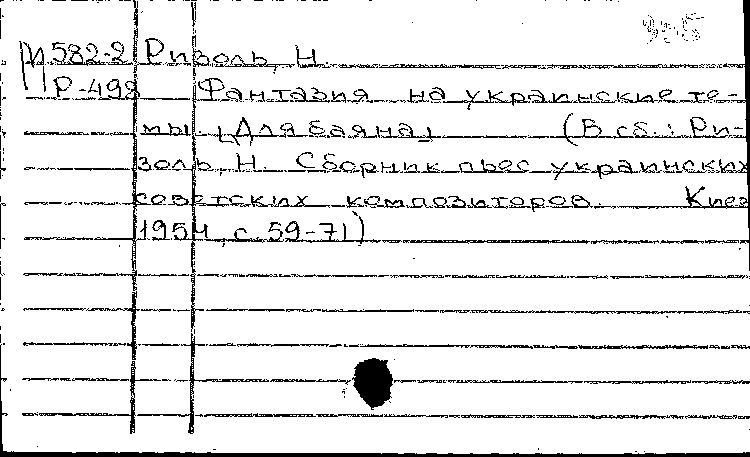 М 582-2 Ризоль, Н.
Р-498 Фантазия на украинские те-
мы. [Для баяна] (В сб.: Ри-
золь, Н. Сборник пьес украинских
советских композиторов. Киев
1954, с. 59-71)